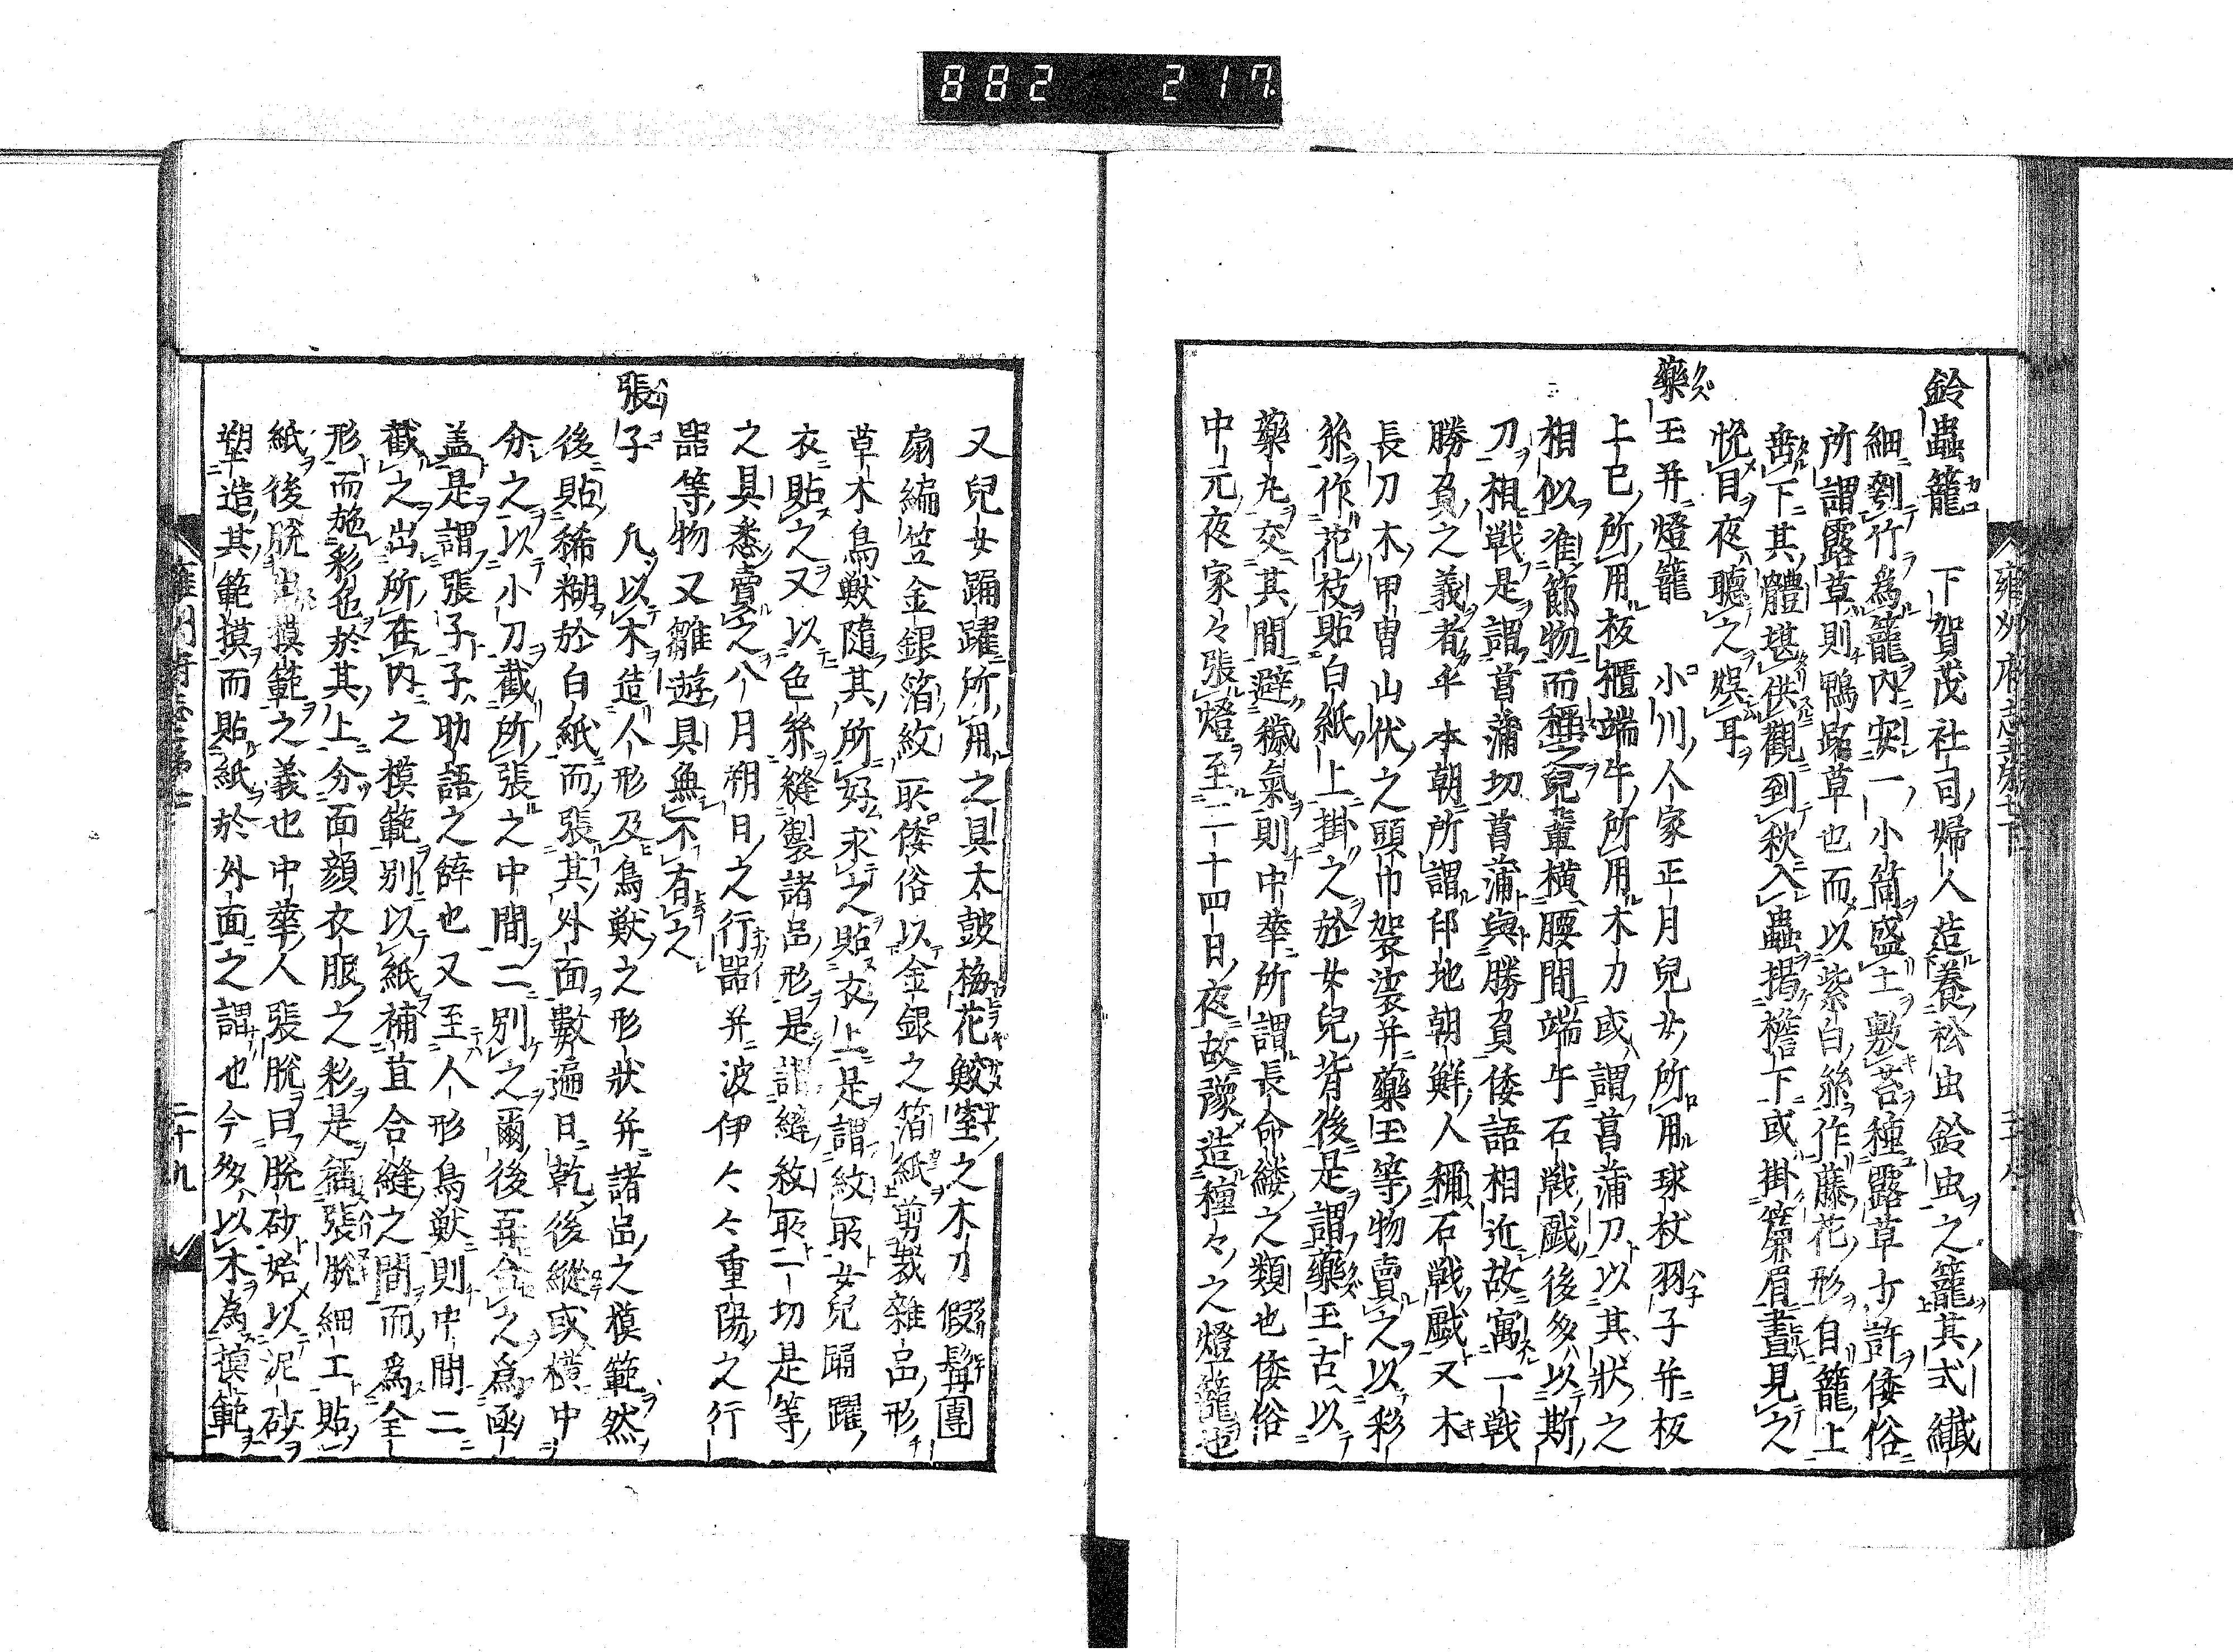 882 217
雍州府志 巻七
鈴蟲籠 下賀茂社司婦人造養松虫鈴虫之籠其式纎
細剉竹為籠内安一小筒盛土敷苔種露草少許倭俗
所謂露草則鴨跖草也而以紫白絲作藤花形自籠上
垂下其體堪供觀到秋入蟲掲檐下或掛簾眉晝見之
悦目夜聽之娯耳
藥玉并燈籠 小川人家正月兒女所用球杖羽子并板
上巳所用板櫃端午所用木刀或謂菖蒲刀以其狀之
相似准節物而稱之兒輩横腰間端午石戦戯後多以斯
刀相戦是謂菖蒲切菖蒲與勝負倭語相近故寓一戦
勝負之義者乎本朝所謂印地朝鮮人稱石戦戯又木
長刀木甲冑山伏之頭巾袈裟并藥玉等物賣之以彩
絲作花枝貼白紙上掛之於女兒背後是謂藥玉古以
藥丸交其間避穢氣則中華所謂長命縷之類也倭俗
中元夜家々張燈至二十四日夜故豫造種々之燈籠也
又兒女踊躍所用之具太鼓梅花鮫室之木刀假髯團
扇編笠金銀箔紋取倭俗以金銀之箔紙剪裁雜品形
草木鳥獣隨其所好求之貼衣上是謂紋取女兒踊躍
衣貼之又以色絲縫製諸品形是謂縫紋取二切是等
之具悉賣之八月朔日之行器并波伊々々重陽之行
器等物又雛遊具無不有之
張子 凡以木造人形及鳥獣之形状并諸品之模範然
後貼稀糊於白紙而張其外面數遍日乾後縱或横中
分之以小刀截所張之中間二別之爾後再合之為凾
盖是謂張子子助語之辭也又至人形鳥獣則中間二
截之出所在内之模範別以紙補苴合縫之間而為全
形而施彩色於其上分面顔衣服之彩是稱張脱細工貼
紙後脱出摸範之義也中華人張脱曰脱砂始以泥砂
塑造其範摸而貼紙於外面之謂也今多以木為摸範
二十九